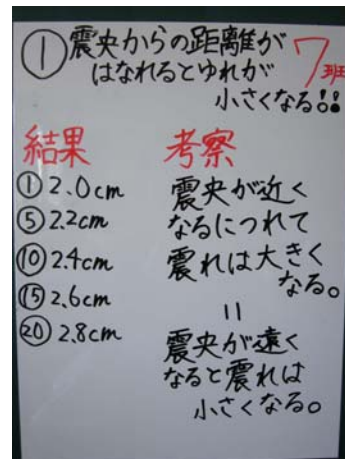 ① 震央からの距離が
はなれるとゆれが
小さくなる!!
7班
結果
① 2.0cm
⑤ 2.2cm
⑩ 2.4cm
⑮ 2.6cm
⑳ 2.8cm
考察
震央が近く
なるにつれて
震れは大きく
なる。
=
震央が遠く
なると震れは
小さくなる。